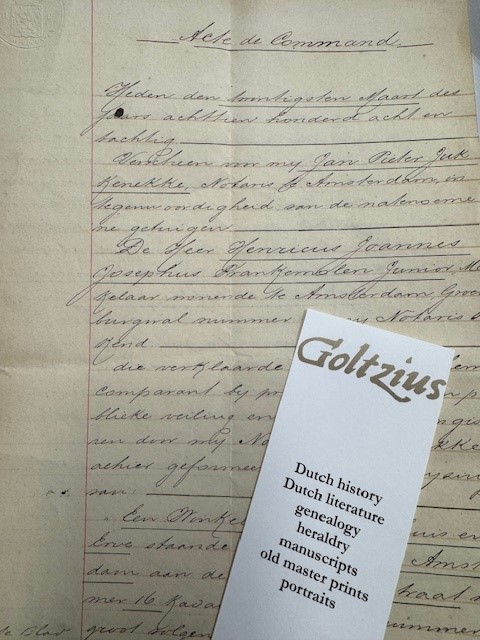 Acte de Command.
Heden den twintigsten Maart des
jaars achttien honderd acht en
tachtig
Verscheen voor mij Jan Pieter
Notaris te Amsterdam, in
tegenwoordigheid van de natenoeme
ne getuigen
De Heer Henricus Joannes
Josephus Frankemolen Junior, Ma
kelaar wonende te Amsterdam
burgwal nummer mij Notaris
kend
die verklaarde
comparant bij
blieke veiling en
ren door mij
achter
van:
Een Winkel huis en
Erve staande Amst
dam aan de straat
mer 16
groot volgen nummer
Goltzius
Dutch history
Dutch literature
genealogy
heraldry
manuscripts
old master prints
portraits